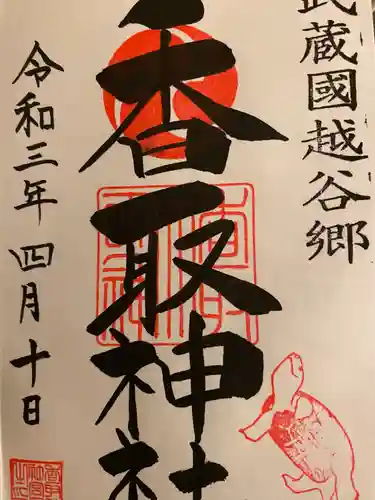 武蔵國越谷郷
香取神社
令和三年四月十日